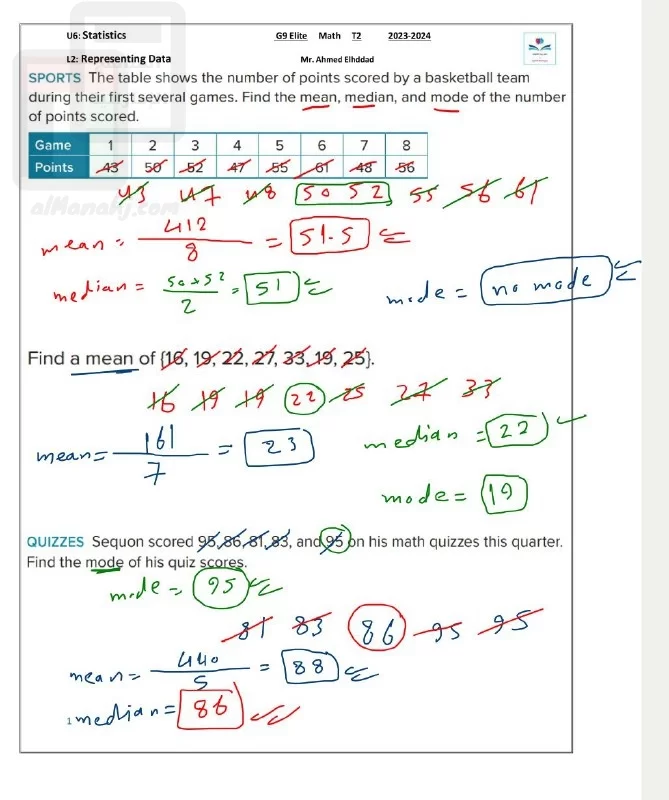 U6: Statistics G9 Elite Math T2 2023-2024
L2: Representing Data Mr. Ahmed Elhddad
SPORTS The table shows the number of points scored by a basketball team
during their first several games. Find the mean, median, and mode of the number
of points scored.
Game 1 2 3 4 5 6 7 8
Points 43 50 52 47 55 61 48 56
43 47 48 50 52 55 56 61
almanahj.com
mean = 412/8 = 51.5
median = 50+52/2 = 51
mode = no mode
Find a mean of {16, 19, 22, 27, 33, 19, 25}.
16 19 19 22 25 27 33
mean = 161/7 = 23
median = 22
mode = 19
QUIZZES Sequon scored 95, 86, 81, 83, and 95 on his math quizzes this quarter.
Find the mode of his quiz scores.
mode = 95
81 83 86 95 95
mean = 440/5 = 88
1 median = 86